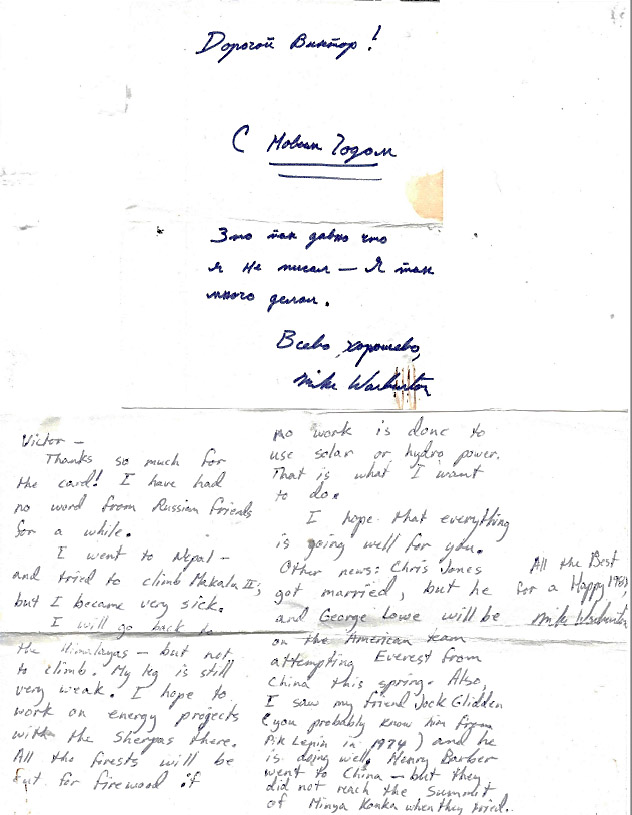 Дорогой Виктор!
С Новым Годом
Это так давно что
я не писал — Я так
много делал.
Всево хорошево,
Mike Warburton
Victor —
Thanks so much for
the card! I have had
no word from Russian friends
for a while.
I went to Nepal —
and tried to climb Makalu II;
but I became very sick.
I will go back to
the Himalayas — but not
to climb. My leg is still
very weak. I hope to
work on energy projects
with the Sherpas there.
All the forests will be
cut for firewood if
no work is done to
use solar or hydro power.
That is what I want
to do.
I hope that everything
is going well for you.
Other news: Chris Jones
got married, but he
and George Lowe will be
on the American team
attempting Everest from
China this spring. Also,
I saw my friend Jock Glidden
(you probably know him from
Pik Lenin in 1974) and he
is doing well. Henry Barber
went to China — but they
did not reach the summit
of Minya Konka when they tried.
All the Best
for a Happy
Mike Warburton